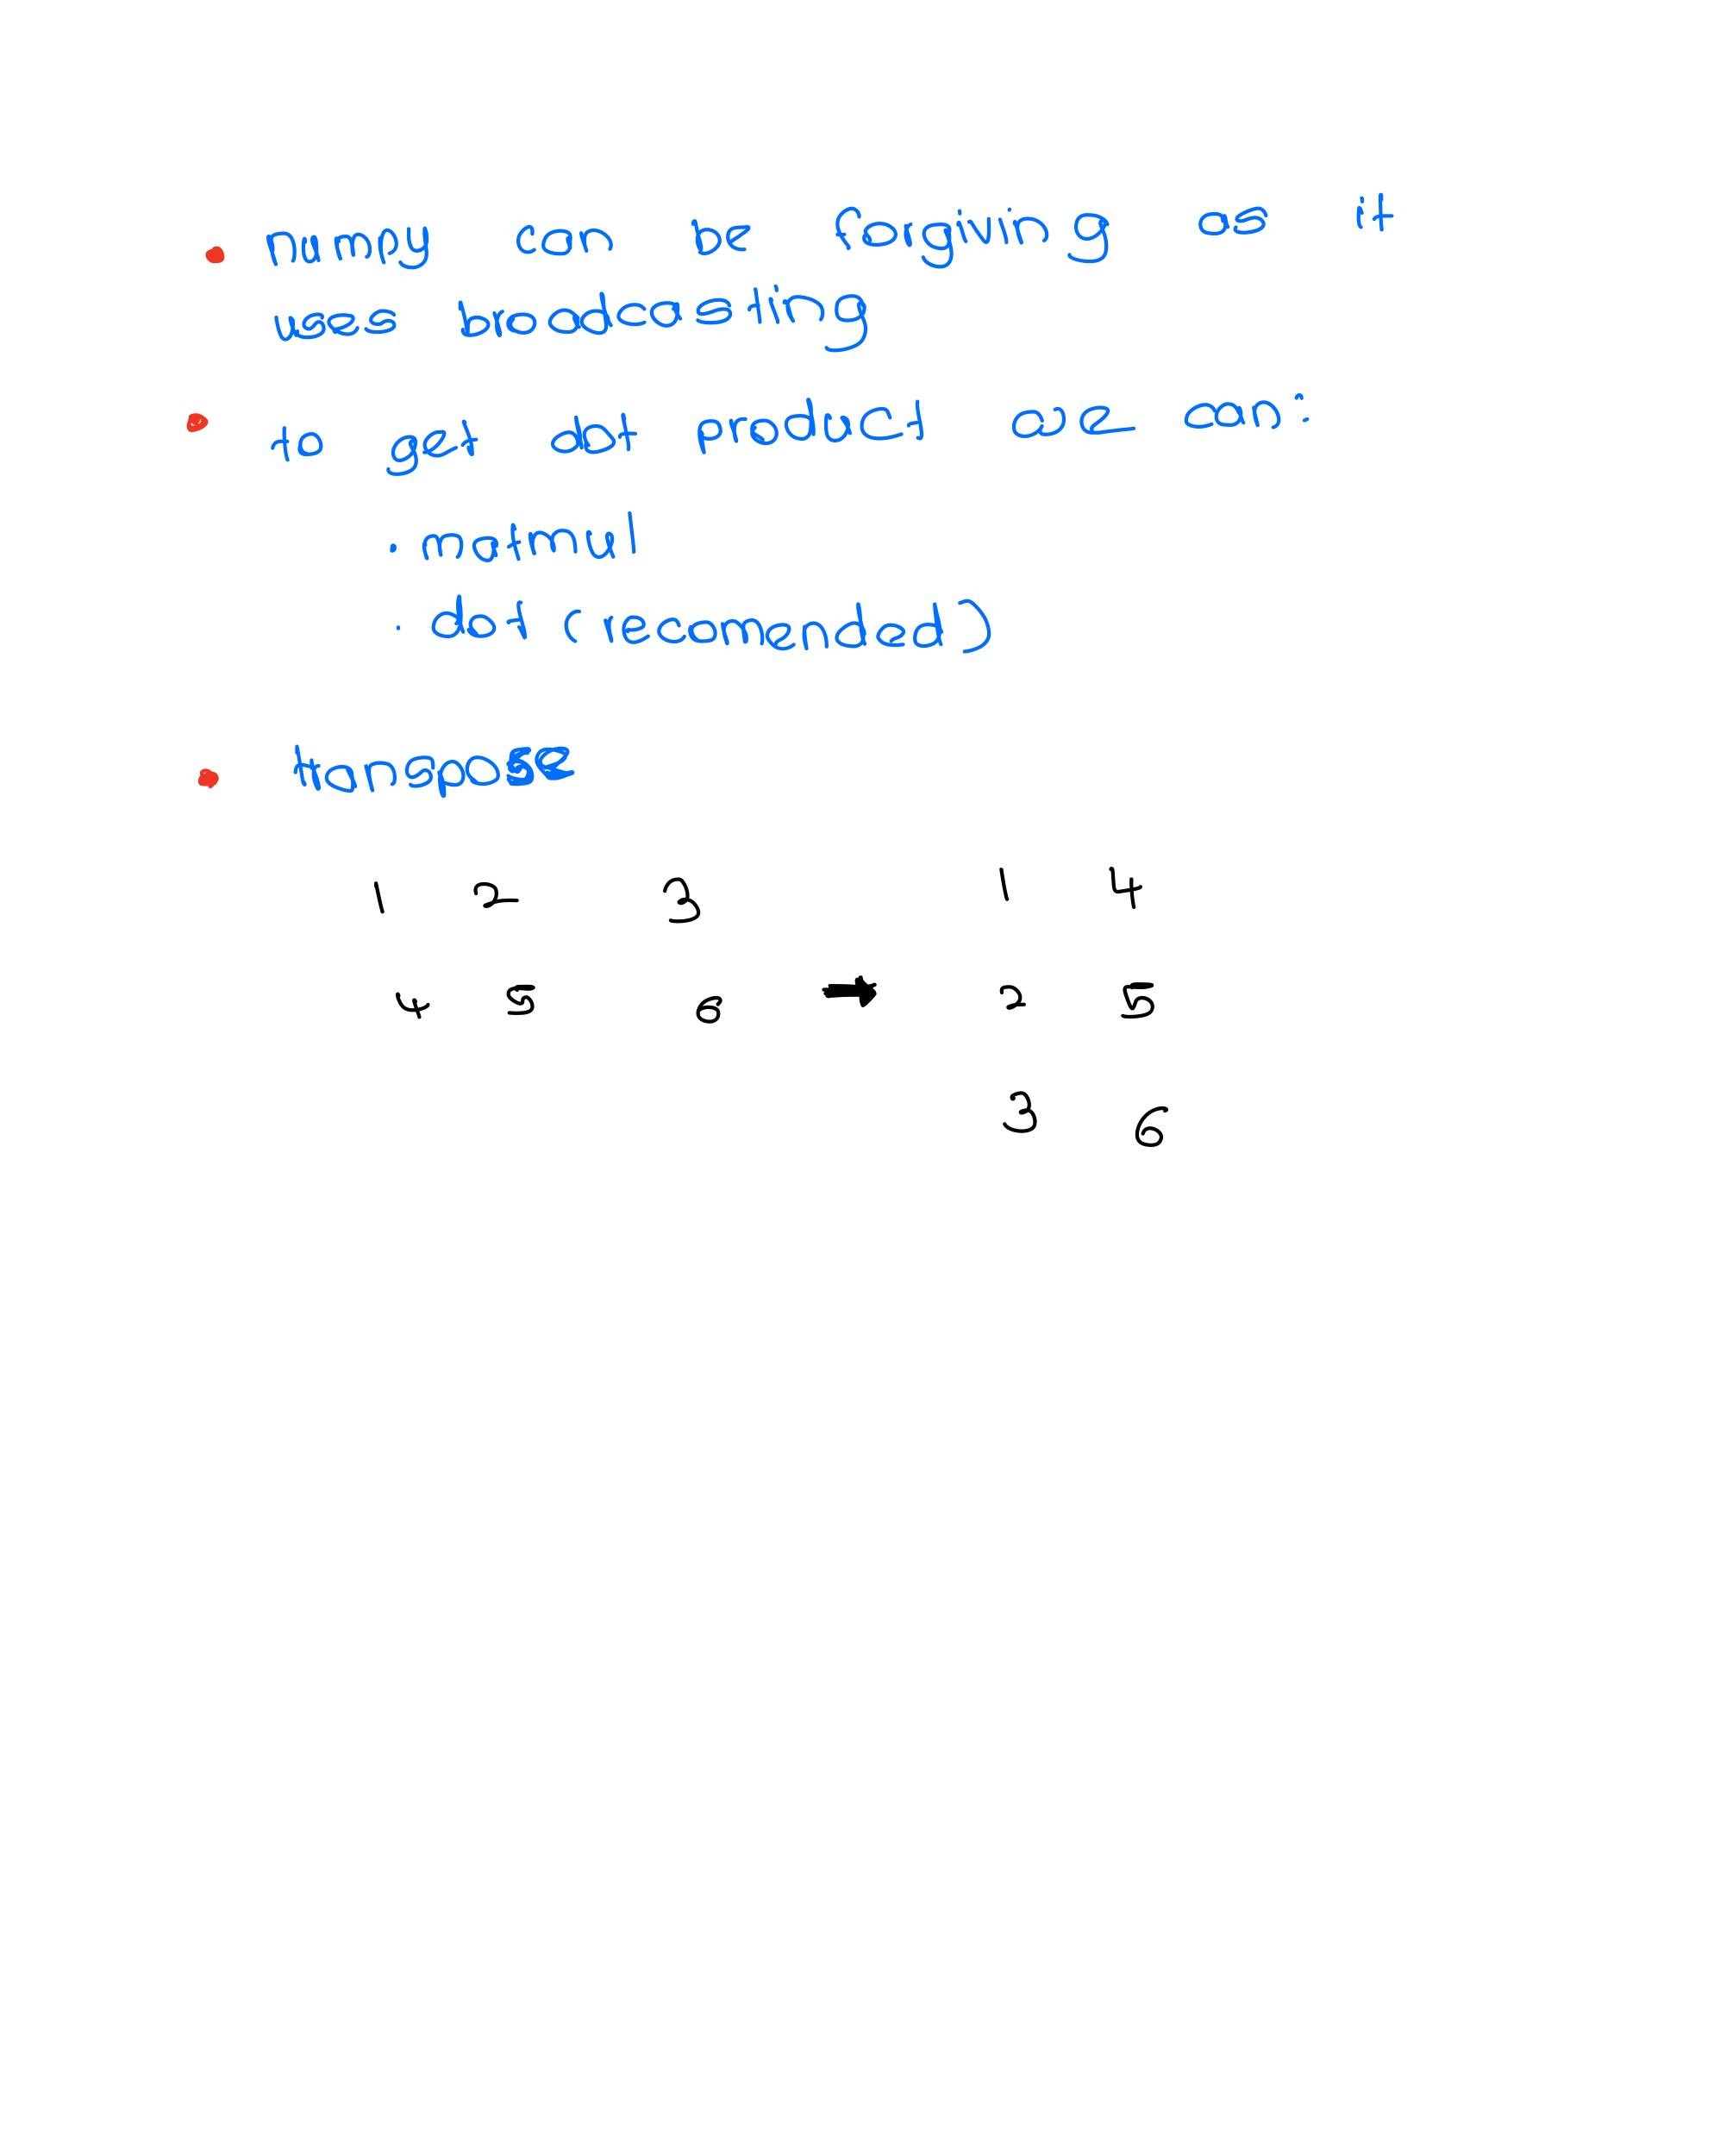 • numpy can be forgiving as it
uses broadcasting
• to get dot product we can:
· matmul
· dot (recomended)
• transpose
1 2 3 1 4
4 5 6 → 2 5
3 6